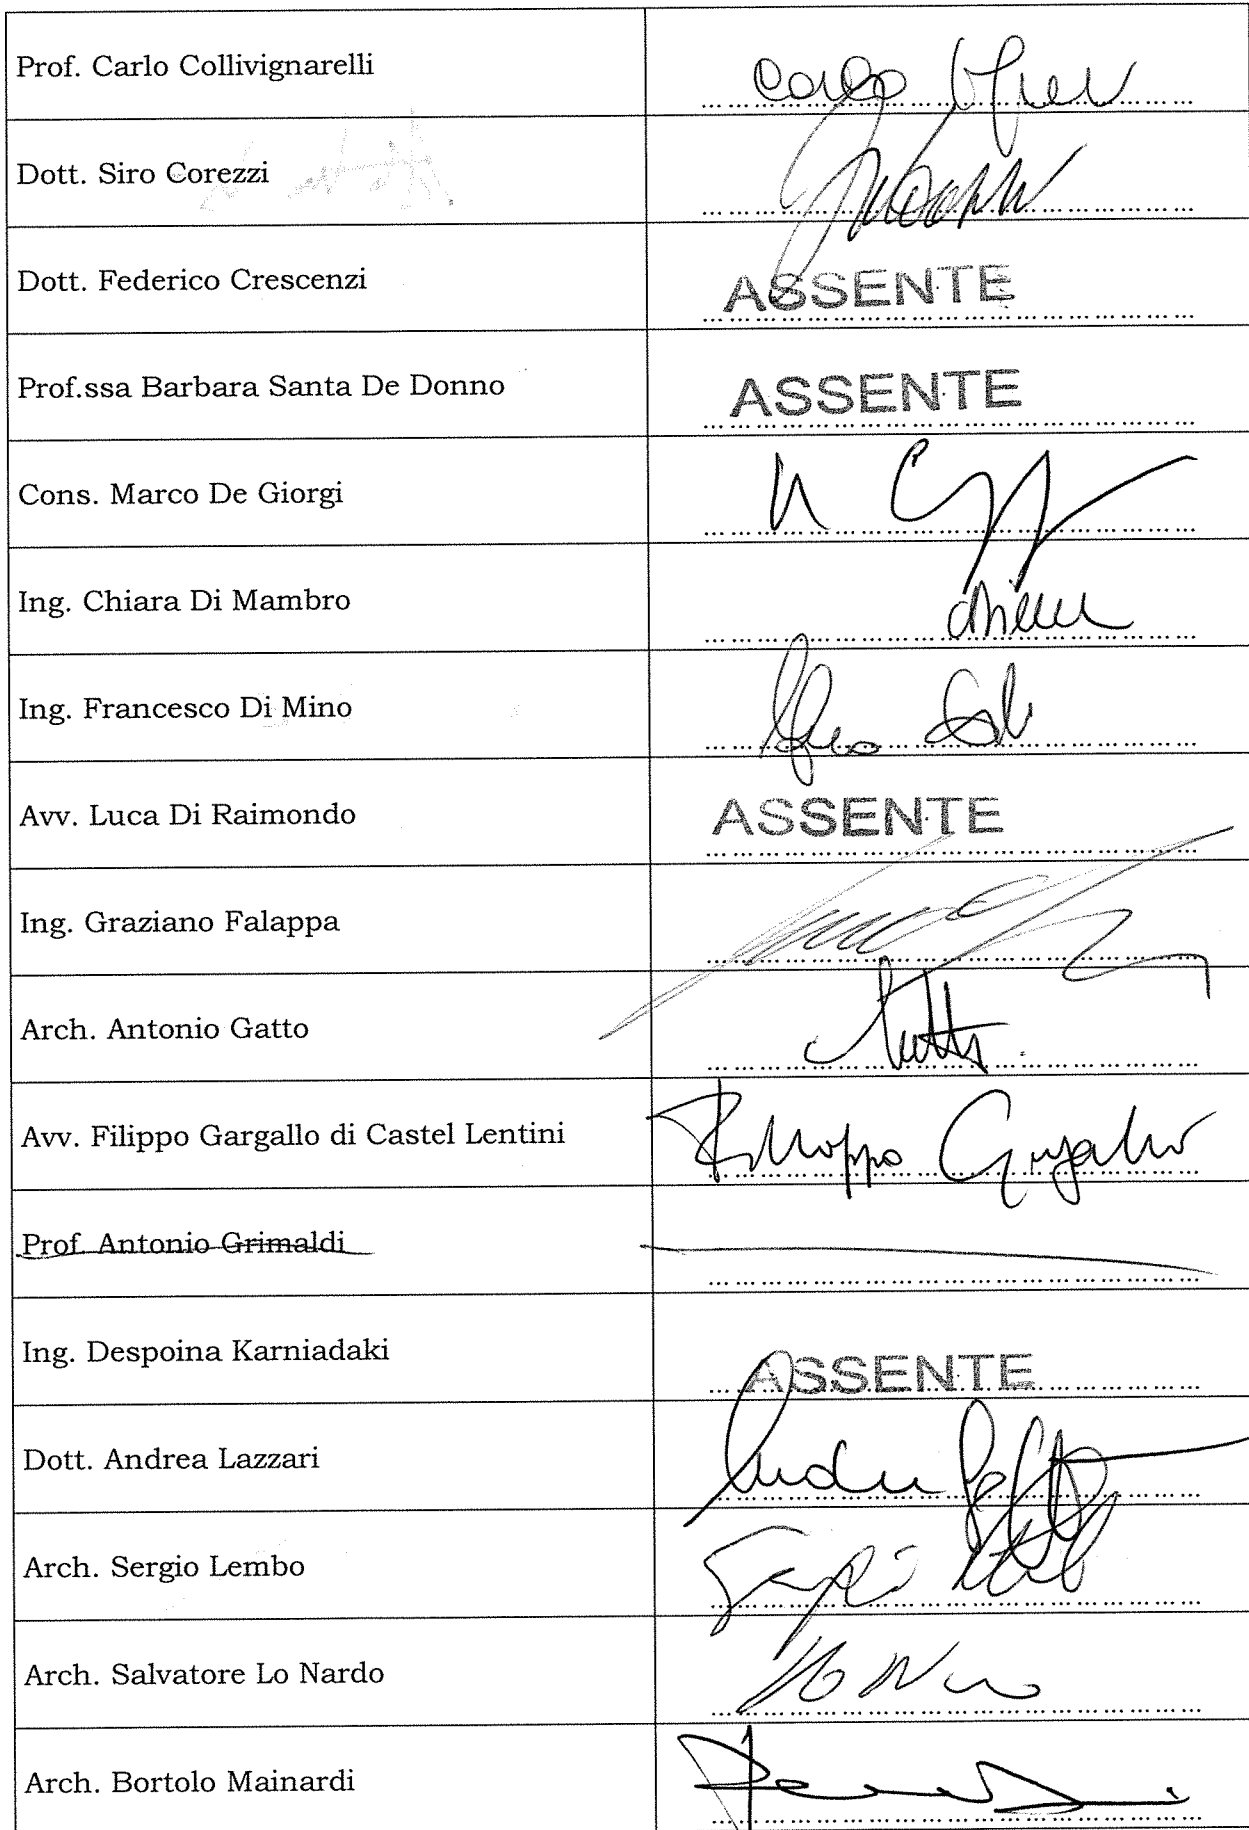 Prof. Carlo Collivignarelli
Carlo
Dott. Siro Corezzi
Dott. Federico Crescenzi
ASSENTE
Prof.ssa Barbara Santa De Donno
ASSENTE
Cons. Marco De Giorgi
Ing. Chiara Di Mambro
Ing. Francesco Di Mino
Avv. Luca Di Raimondo
ASSENTE
Ing. Graziano Falappa
Arch. Antonio Gatto
Avv. Filippo Gargallo di Castel Lentini
Filippo Gargallo
Prof. Antonio Grimaldi
Ing. Despoina Karniadaki
ASSENTE
Dott. Andrea Lazzari
Arch. Sergio Lembo
Arch. Salvatore Lo Nardo
Arch. Bortolo Mainardi